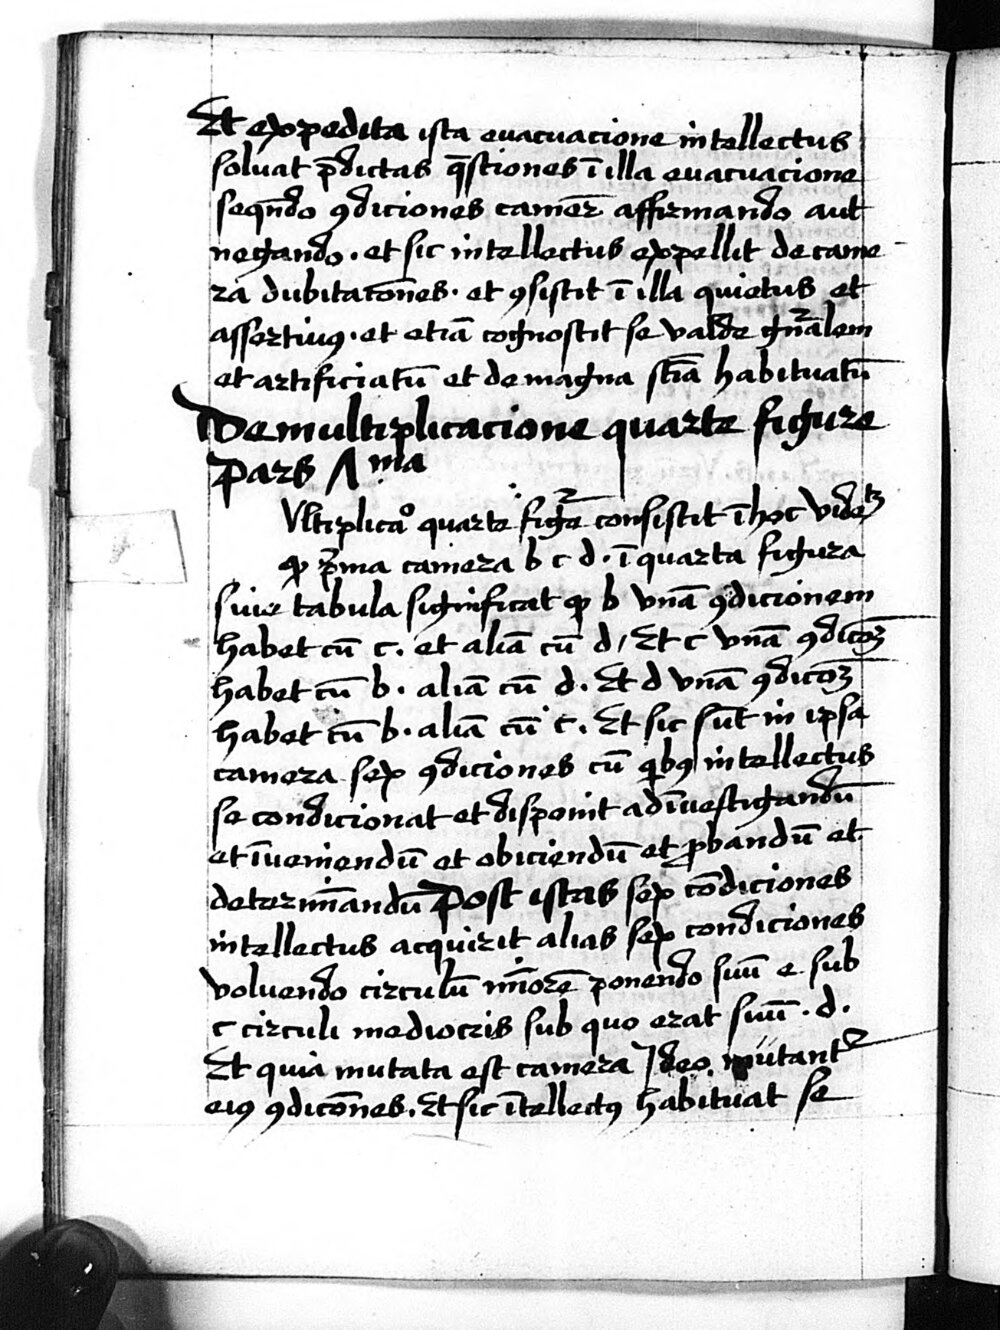 Et expedita ista euacuacione intellectus
soluat p̄dictas q̄stiones ī illa euacuacione
seqn̄do ꝯdiciones camer̄ affirmando aut
negando. et sic intellectus expellit de came
ra dubitacōnes. et ꝯsistit ī illa quietus et
assertiuꝰ. et etiā cognoscit se valde gn̄ralem
et artificiatū et de magna sciā habituatū
De multiplicacione quarte figure
Pars 1ma
Ultiplicaᵒ quarte figure consistit ī hoc videtꝫ
ꝙ pr̄ma camera b c d. ī quarta figura
siue tabula significat ꝙ b vnā ꝯdicionem
habet cū c. et aliā cū d / Et c vnā ꝯdicōꝫ
habet cū b. aliā cū d. Et d vnā ꝯdicōꝫ
habet cū b. aliā cū c. Et sic sūt in ipsa
camera sex ꝯdiciones cū qͥbꝰ intellectus
se condicionat et disponit ad īuestigandū
et īueniendū et obiciendū et ꝓbandū et
determīandū Post istas sex cōdiciones
intellectus acquirit alias sex condiciones
voluendo circulū mīorē ponendo suū e sub
c circuli mediocris sub quo erat suū . d.
Et quia mutata est camera Ideo mutantr
eiꝰ ꝯdicōnes. Et sic ītellectꝰ habituat se